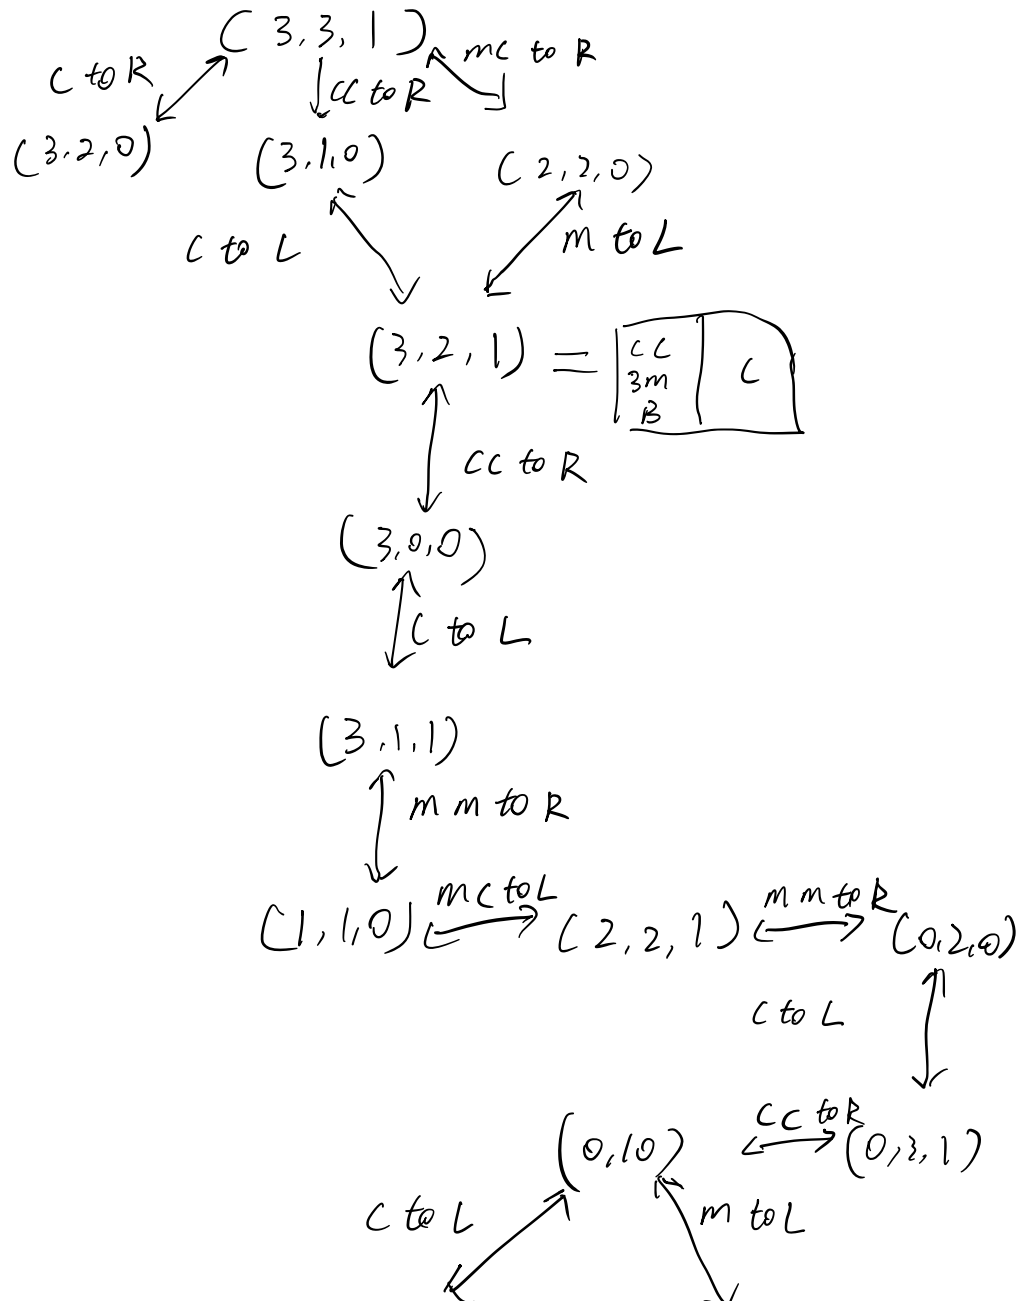 (3,3,1)
C to R
CC to R
MC to R
(3,2,0)
(3,1,0)
(2,2,0)
C to L
M to L
(3,2,1) =
CC
3M
B
C
CC to R
(3,0,0)
C to L
(3,1,1)
MM to R
(1,1,0)
MC to L
(2,2,1)
MM to R
(0,2,0)
C to L
(0,10)
CC to R
(0,3,1)
C to L
M to L